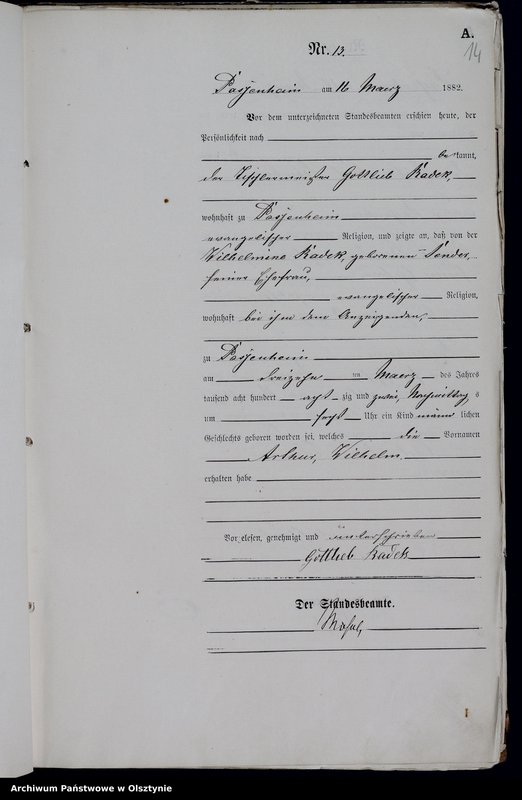 A.
14
Nr. 13.
Passenheim am 16 Maerz 1882.
Vor dem unterzeichneten Standesbeamten erschien heute, der
Persönlichkeit nach
bekannt,
der Tischlermeister Gottlieb Radek,
wohnhaft zu Passenheim
evangelischer Religion, und zeigte an, daß von der
Wilhelmine Radek, geborenen Sender,
seiner Ehefrau,
evangelischer Religion,
wohnhaft bei ihm dem Anzeigenden,
zu Passenheim
am dreizehn ten Maerz des Jahres
tausend acht hundert acht zig und zwei, Nachmittag s
um sechs Uhr ein Kind männ lichen
Geschlechts geboren worden sei, welches die Vornamen
Arthur, Wilhelm
erhalten habe
Vorgelesen, genehmigt und unterschrieben
Gottlieb Radek
Der Standesbeamte.
Archiwum Państwowe w Olsztynie